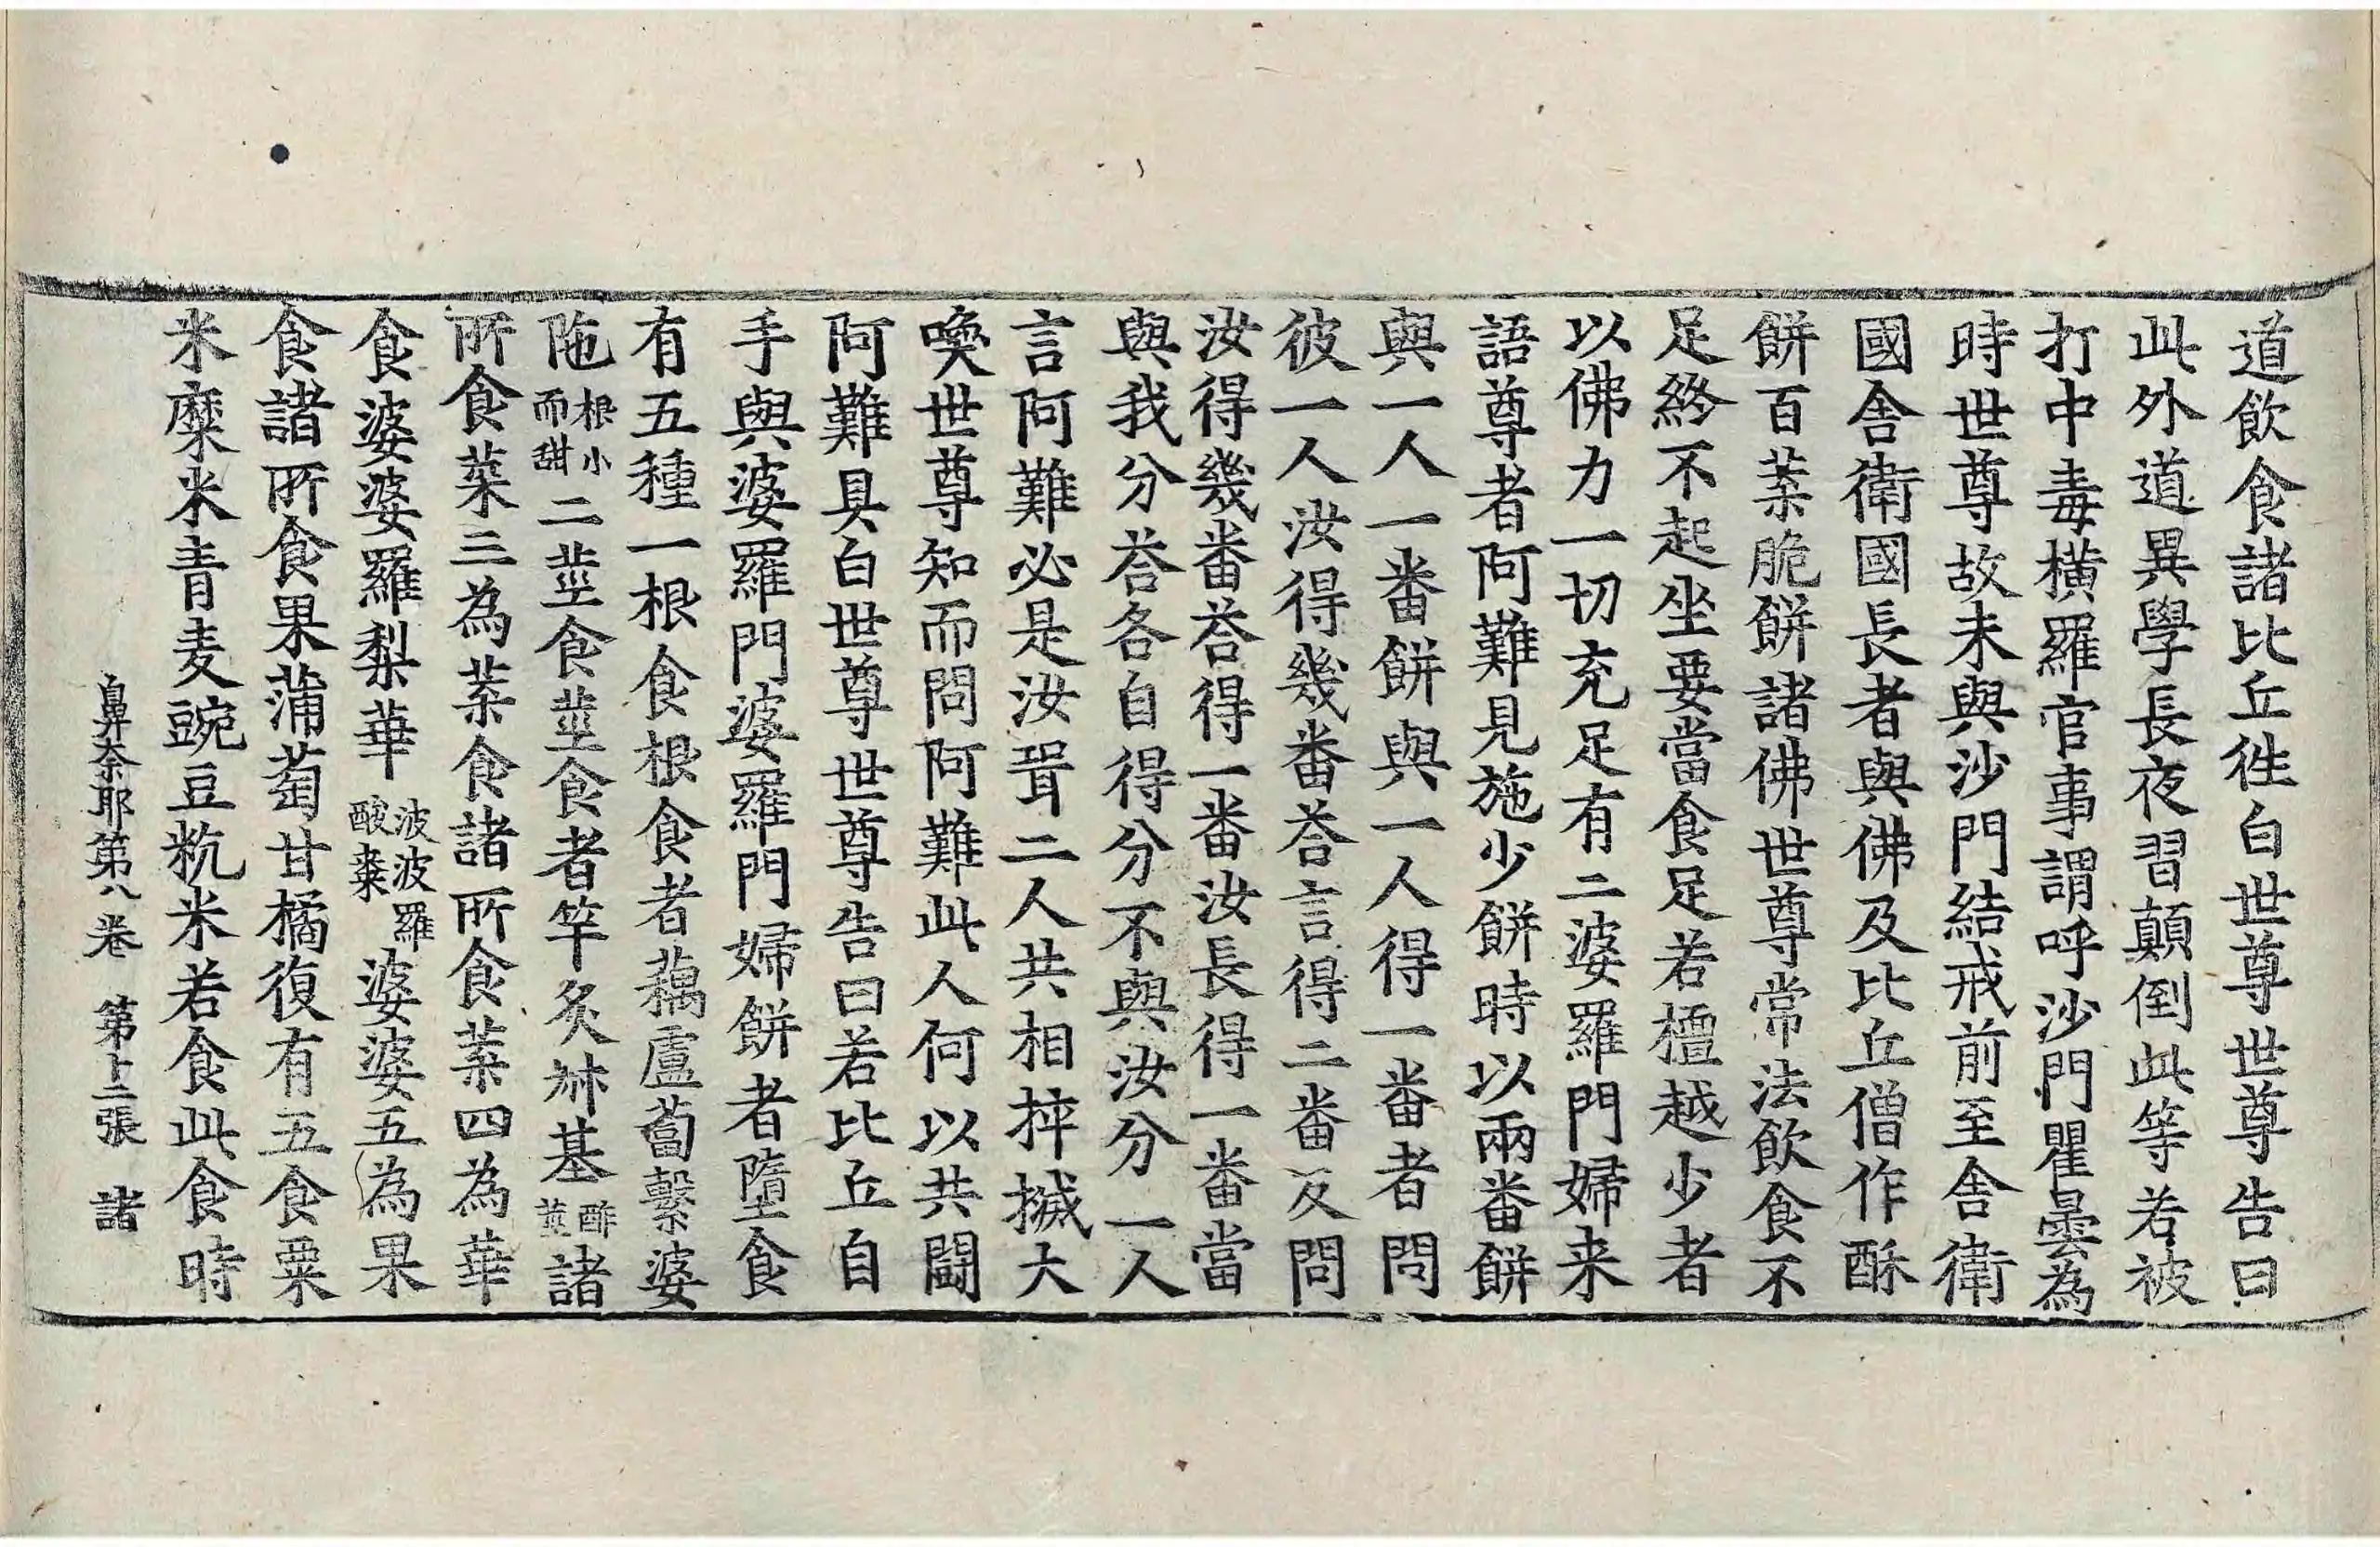 道飲食諸比丘徃白世尊世尊告曰
此外道異學長夜習顛倒此等若被
打中毒橫羅官事謂呼沙門瞿曇為
時世尊故未與沙門結戒前至舍衛
國舍衛國長者與佛及比丘僧作酥
餅百葉脆餅諸佛世尊常法飲食不
足終不起坐要當食足若檀越少者
以佛力一切充足有二婆羅門婦来
語尊者阿難見施少餅時以兩番餅
與一人一番餅與一人得一番者問
彼一人汝得幾番荅言得二番反問
汝得幾番荅得一番汝長得一番當
與我分荅各自得分不與汝分一人
言阿難必是汝壻二人共相捽搣大
喚世尊知而問阿難此人何以共鬪
阿難具白世尊世尊告曰若比丘自
手與婆羅門婆羅門婦餅者墮食
有五種一根食根食者藕蘆蔔繫婆
陁根小而甜二莖食莖食者竿炙菻基酢莖諸
所食葉三為葉食諸所食葉四為華
食婆婆羅梨華波波羅酸棗婆婆五為果
食諸所食果蒲萄甘橘復有五食粟
米糜米青麦豌豆秔米若食此食時
鼻奈耶第八卷 第十二張 諸